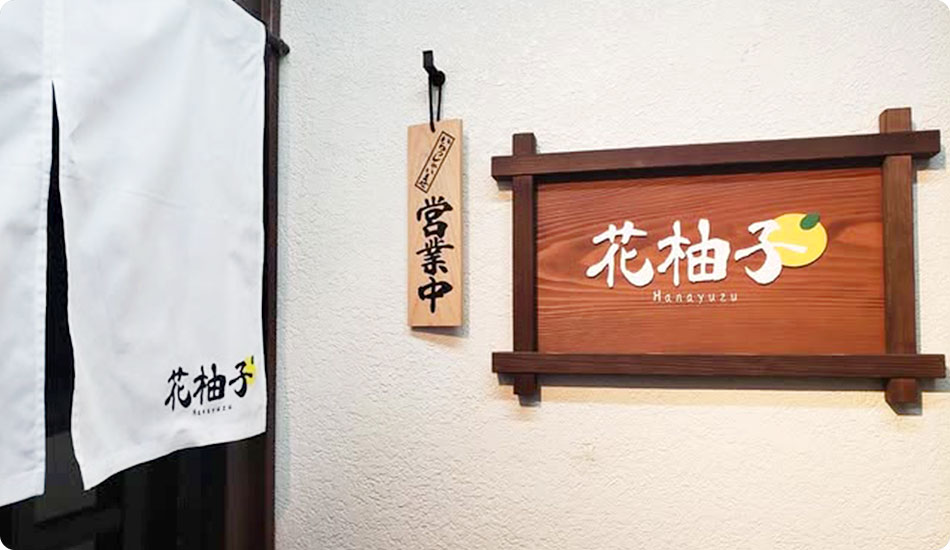 花柚子
Hanayuzu
いらっしゃいませ
営業中
花柚子
Hanayuzu